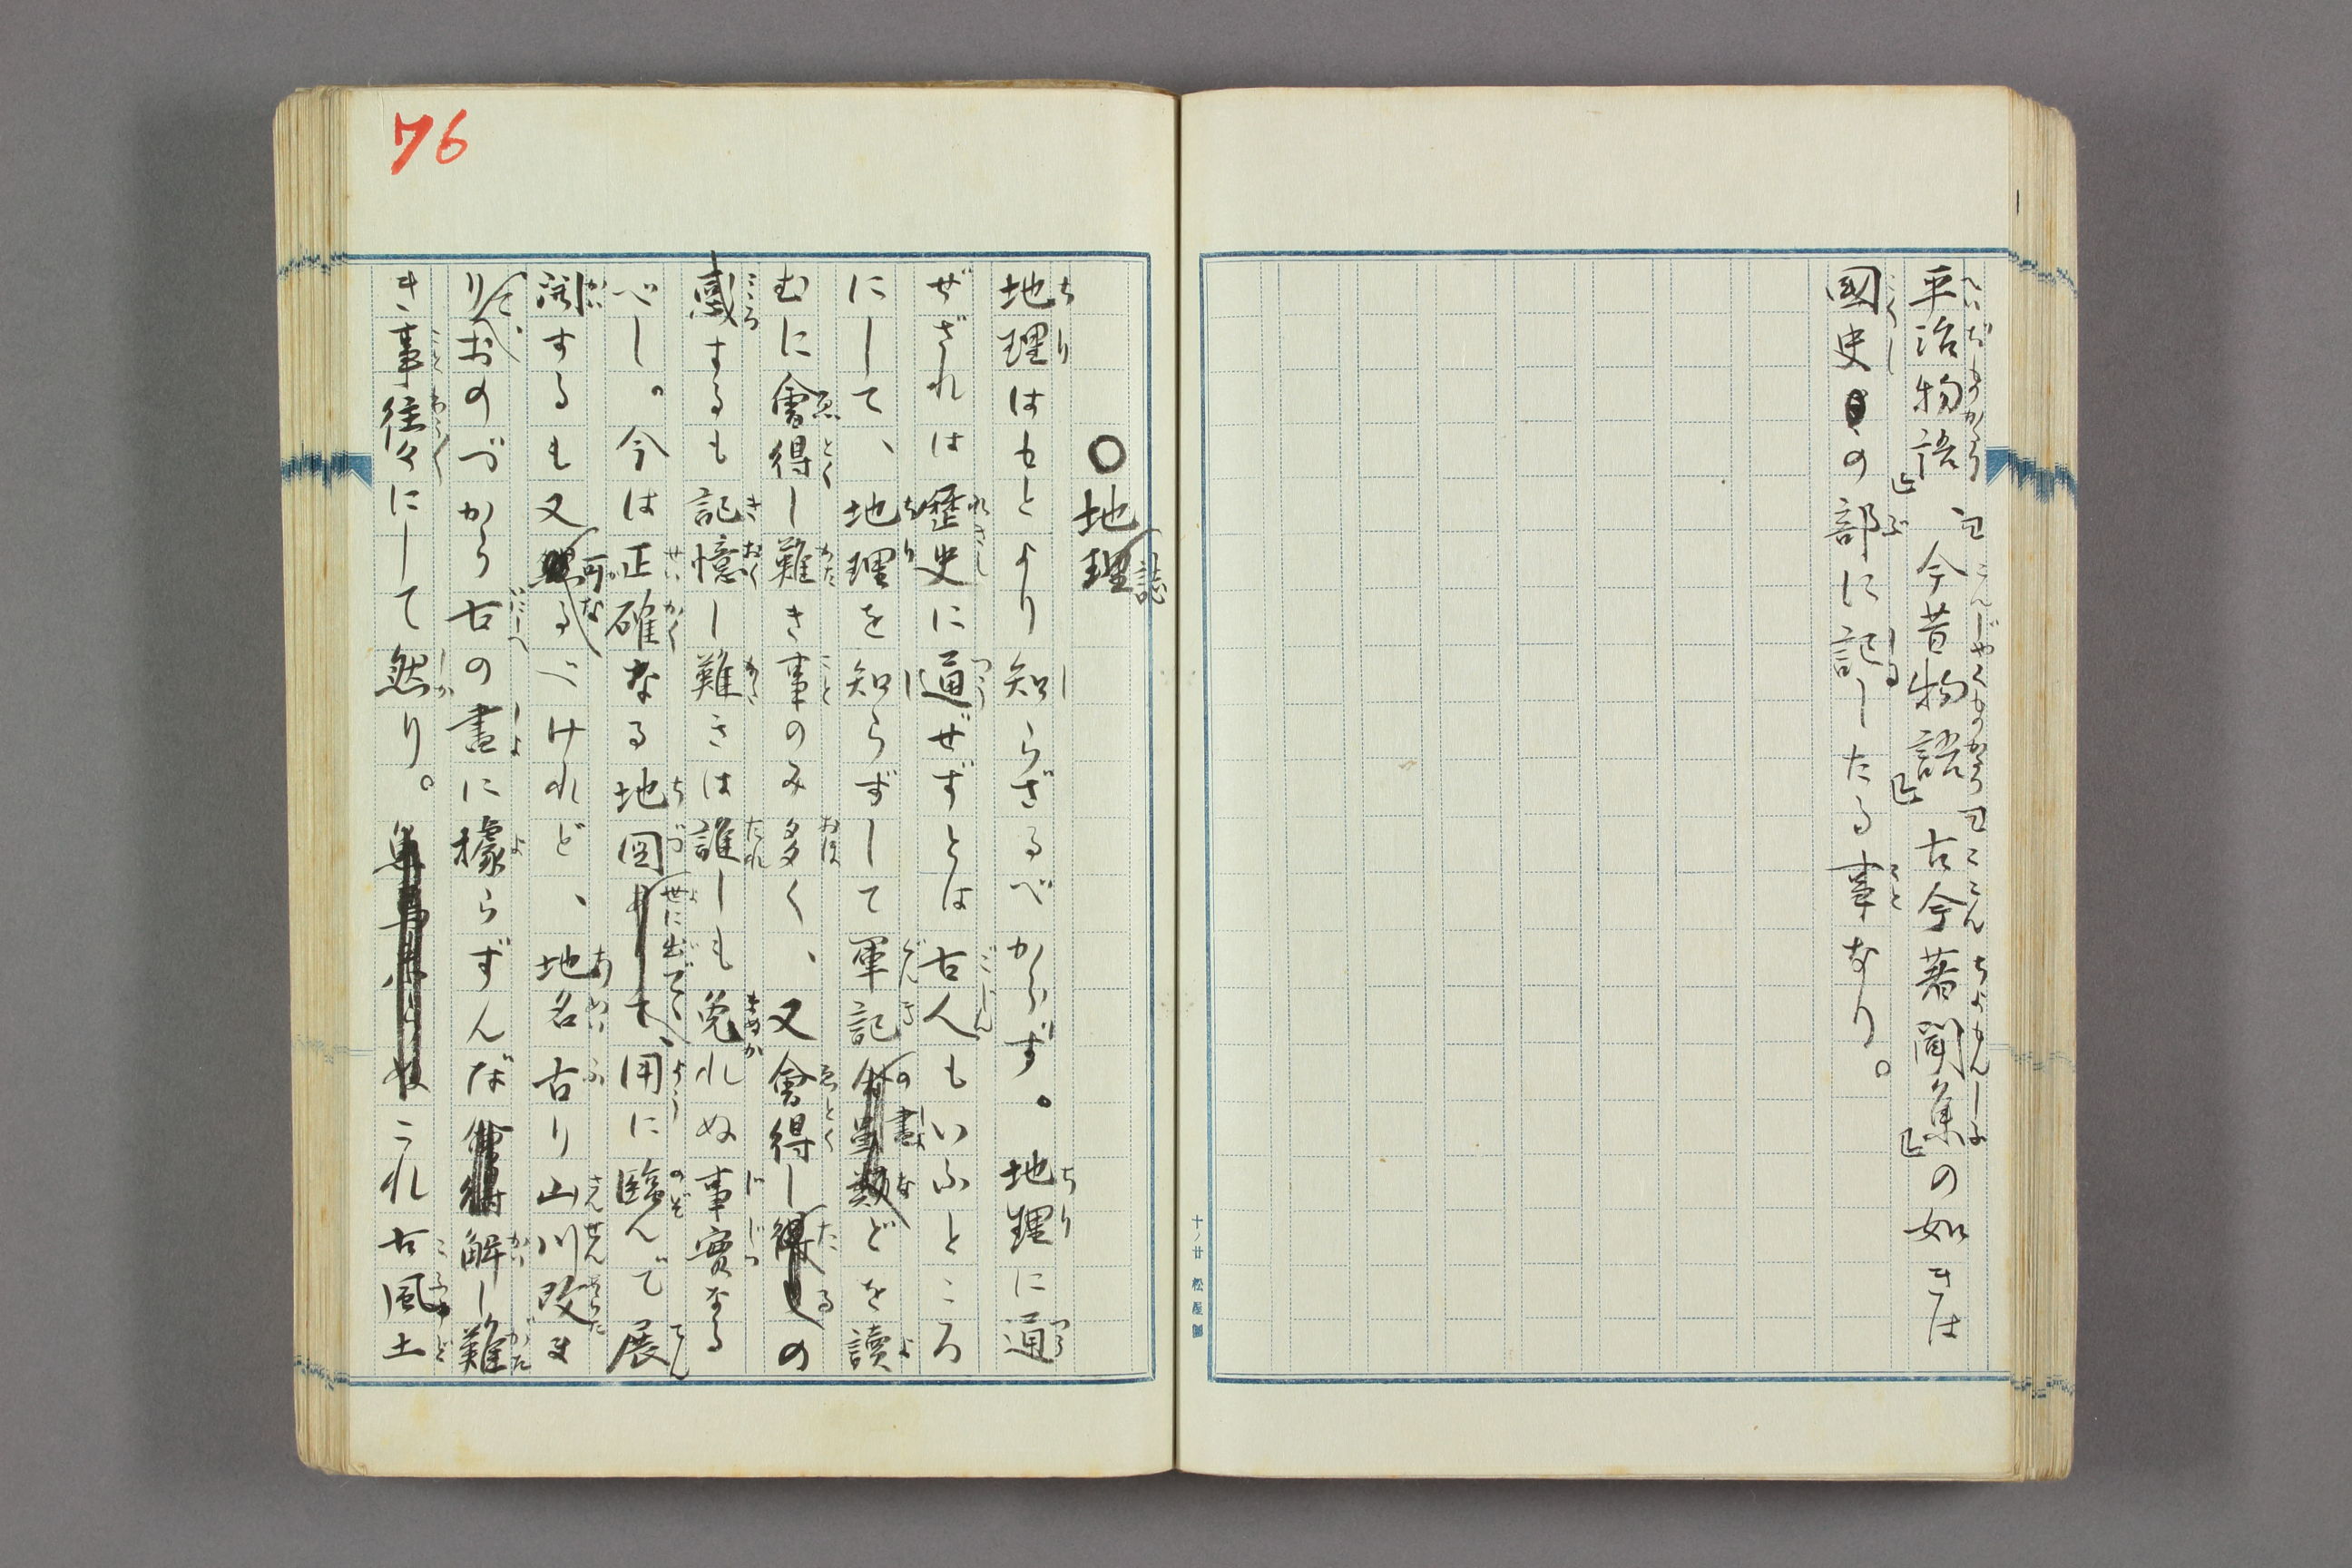 平治物語、今昔物語 古今著聞集の如きは
國史の部に記したる事なり。
十ノ廿 松屋製
76
〇地理誌
地理はもとより知らざるべからず。地理に通
ぜざれは歴史に通ぜずとは古人もいふところ
にして、地理を知らずして軍記の書などを讀
むに會得し難き事のみ多く、又會得したるの
感するも記憶し難きは誰しも免れぬ事實なる
べし。今は正確なる地図世に出でて、用に臨んで展
開するも又可なるべけれど、地名古り山川改ま
りて、おのづから古の書に據らずんば解し難
き事徃々にして然り。これ古風土